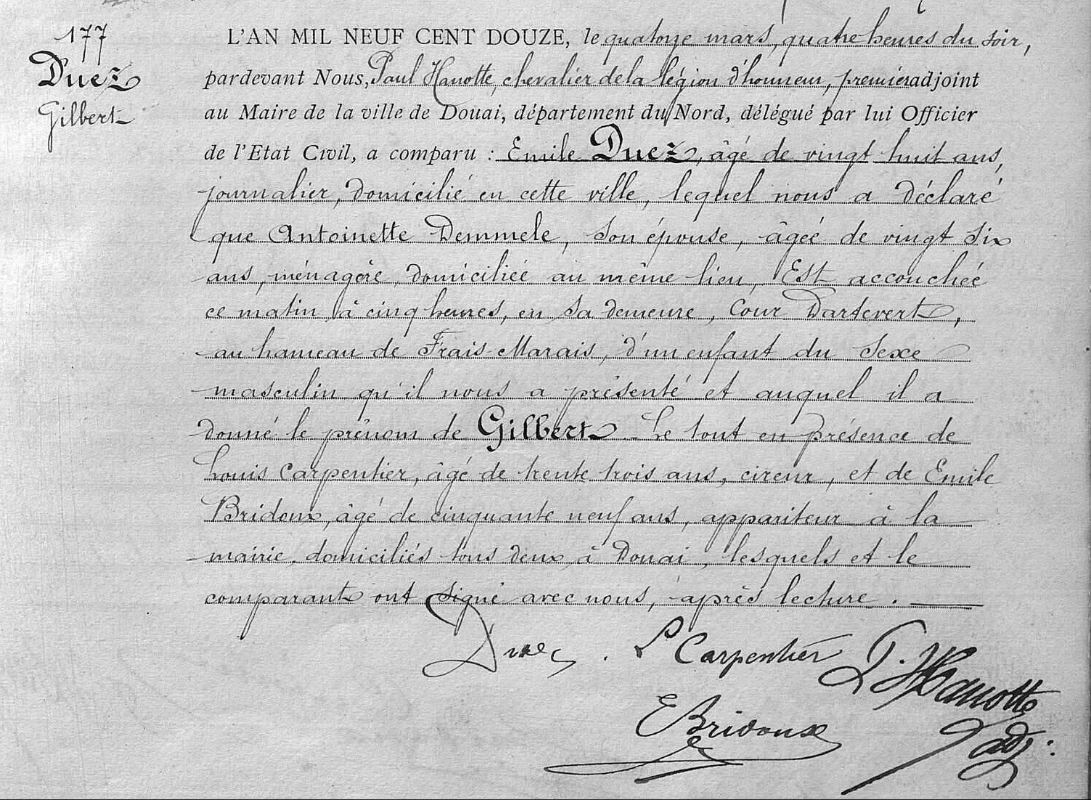 177
Duez
Gilbert
L'AN MIL NEUF CENT DOUZE, le quatorze mars, quatre heures du soir,
pardevant Nous, Paul Hanotte, chevalier de la légion d'honneur, premier adjoint
au Maire de la ville de Douai, département du Nord, délégué par lui Officier
de l'Etat Civil, a comparu : Emile Duez, âgé de vingt huit ans,
journalier, domicilié en cette ville, lequel nous a déclaré
que Antoinette Demmele, son épouse, âgée de vingt six
ans, ménagère, domiciliée au même lieu, Est accouchée
ce matin à cinq heures, en sa demeure, Cour Dartevert,
au hameau de Frais-Marais, d'un enfant du sexe
masculin qu'il nous a présenté et auquel il a
donné le prénom de Gilbert. Le tout en présence de
Louis Carpentier, âgé de trente trois ans, cireur, et de Emile
Bridoux, âgé de cinquante neuf ans, appariteur à la
mairie, domiciliés tous deux à Douai, lesquels et le
comparant ont signé avec nous, après lecture.
Duez. L Carpentier P. Hanotte
E Bridoux adj: